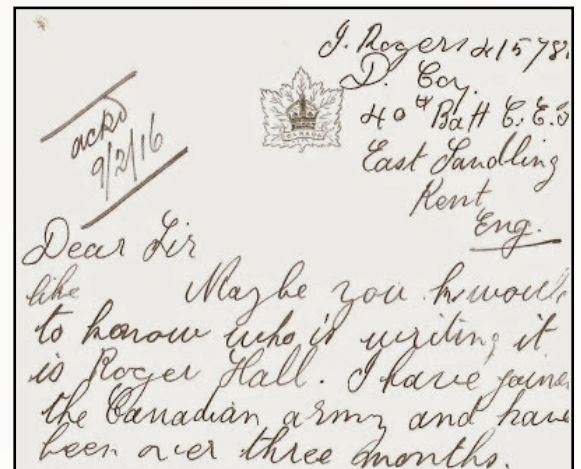 J. Rogers 41578
D. Coy.
40th Batt C. E. F
East Sandling
Kent
Eng.
ackd
9/2/16
CANADA
Dear Sir
like Maybe you would
to know who is writing it
is Roger Hall. I have joined
the Canadian army and have
been over three months.